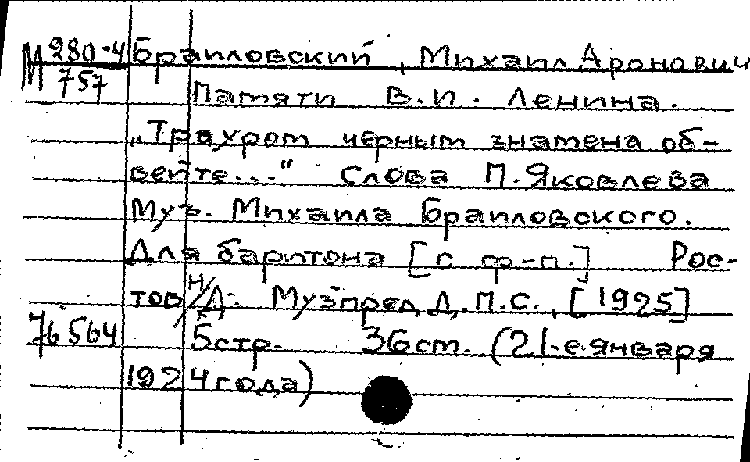 М 280-4 Браиловский, Михаил Аронович
757
Памяти В.И. Ленина.
„Трауром черным знамена об-
вейте..." Слова П. Яковлева
Муз. Михаила Браиловского.
Для баритона [с ф-п.] Рос-
тов н/Д. Музпред Д.П.С., [1925]
76564 5стр. 36см. (21-е января
1924 года)